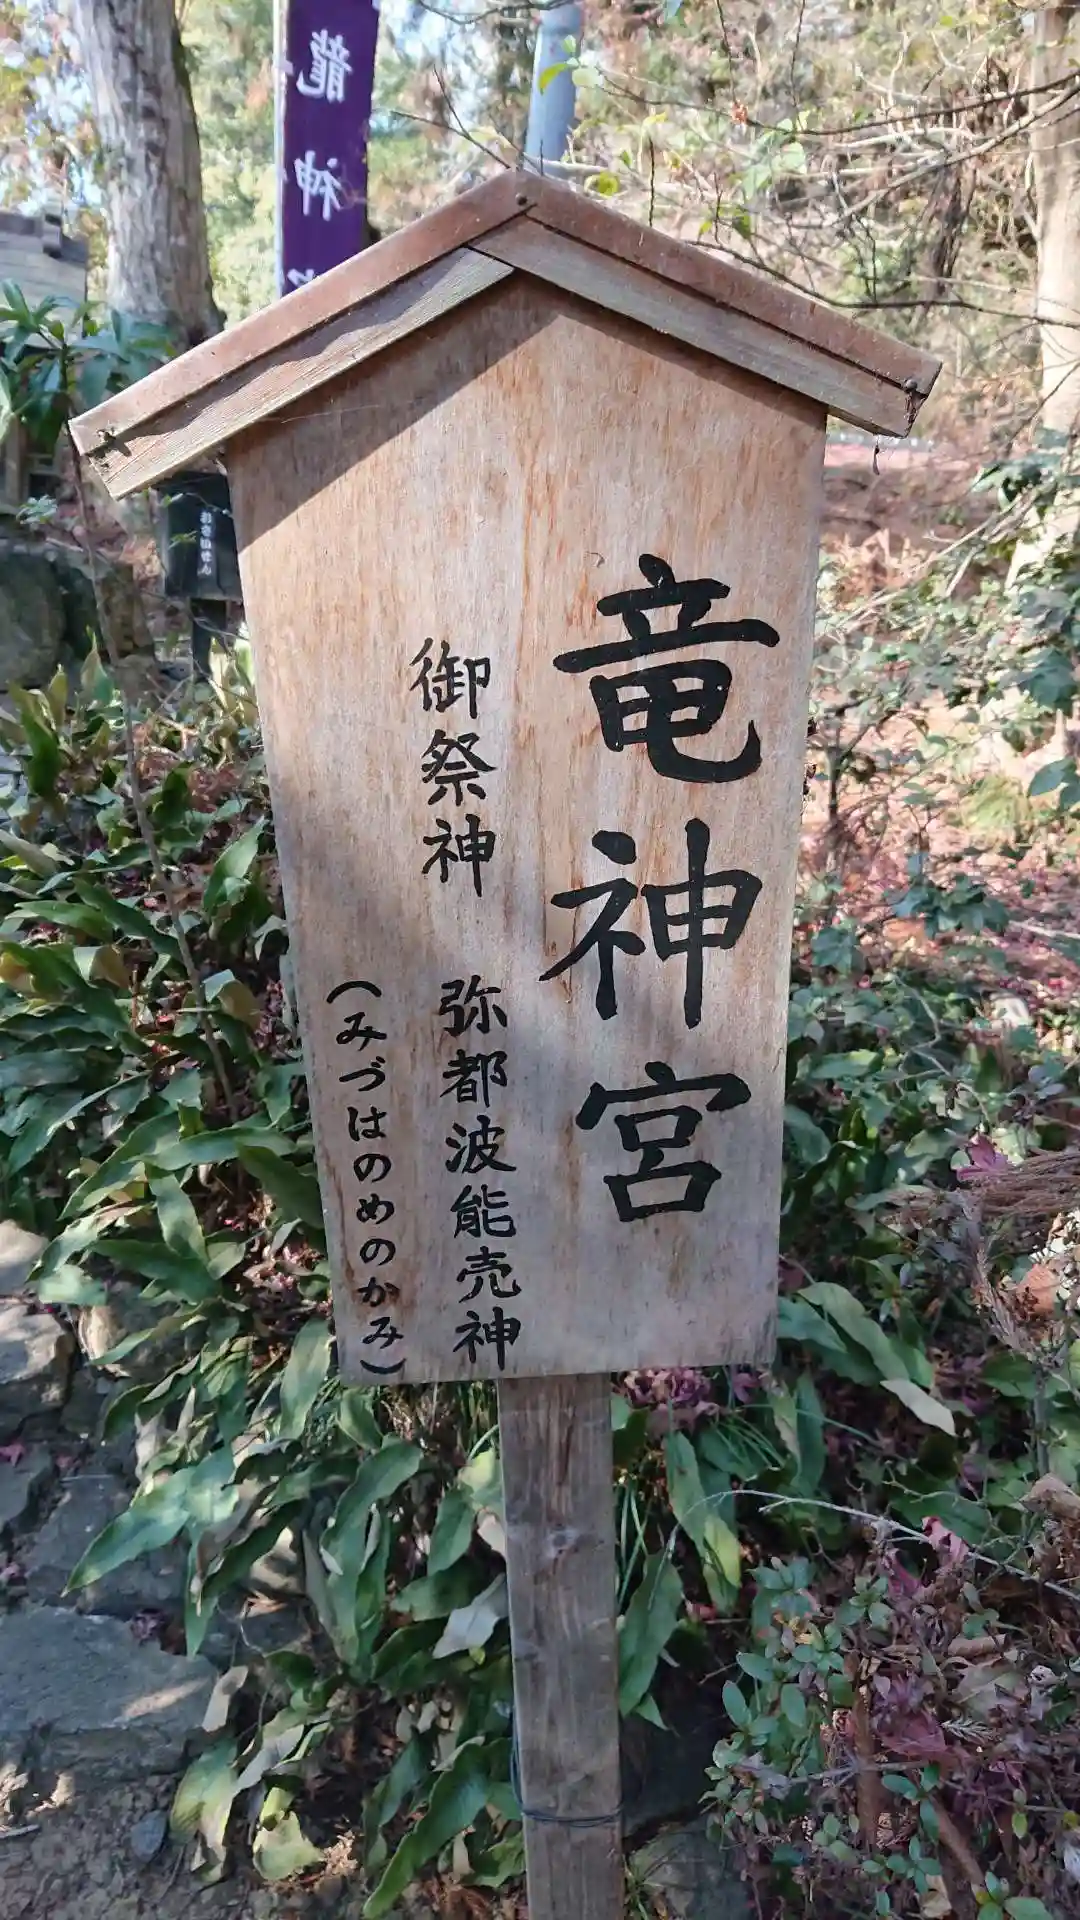 竜神宮
御祭神 弥都波能売神
(みづはのめのかみ)
龍神
おさいせん